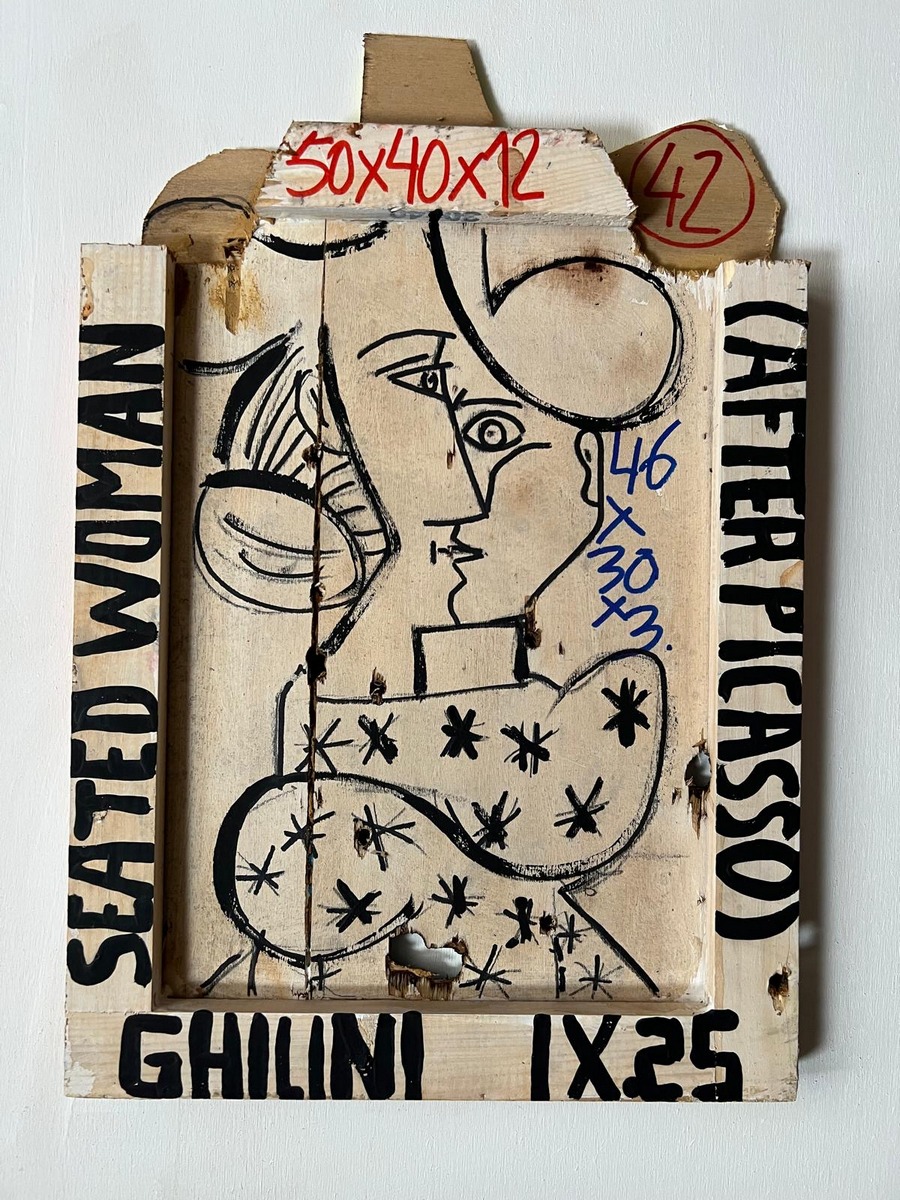 50x40x12
42
SEATED WOMAN
(AFTER PICASSO)
46
x
30
x3.
GHILINI IX25